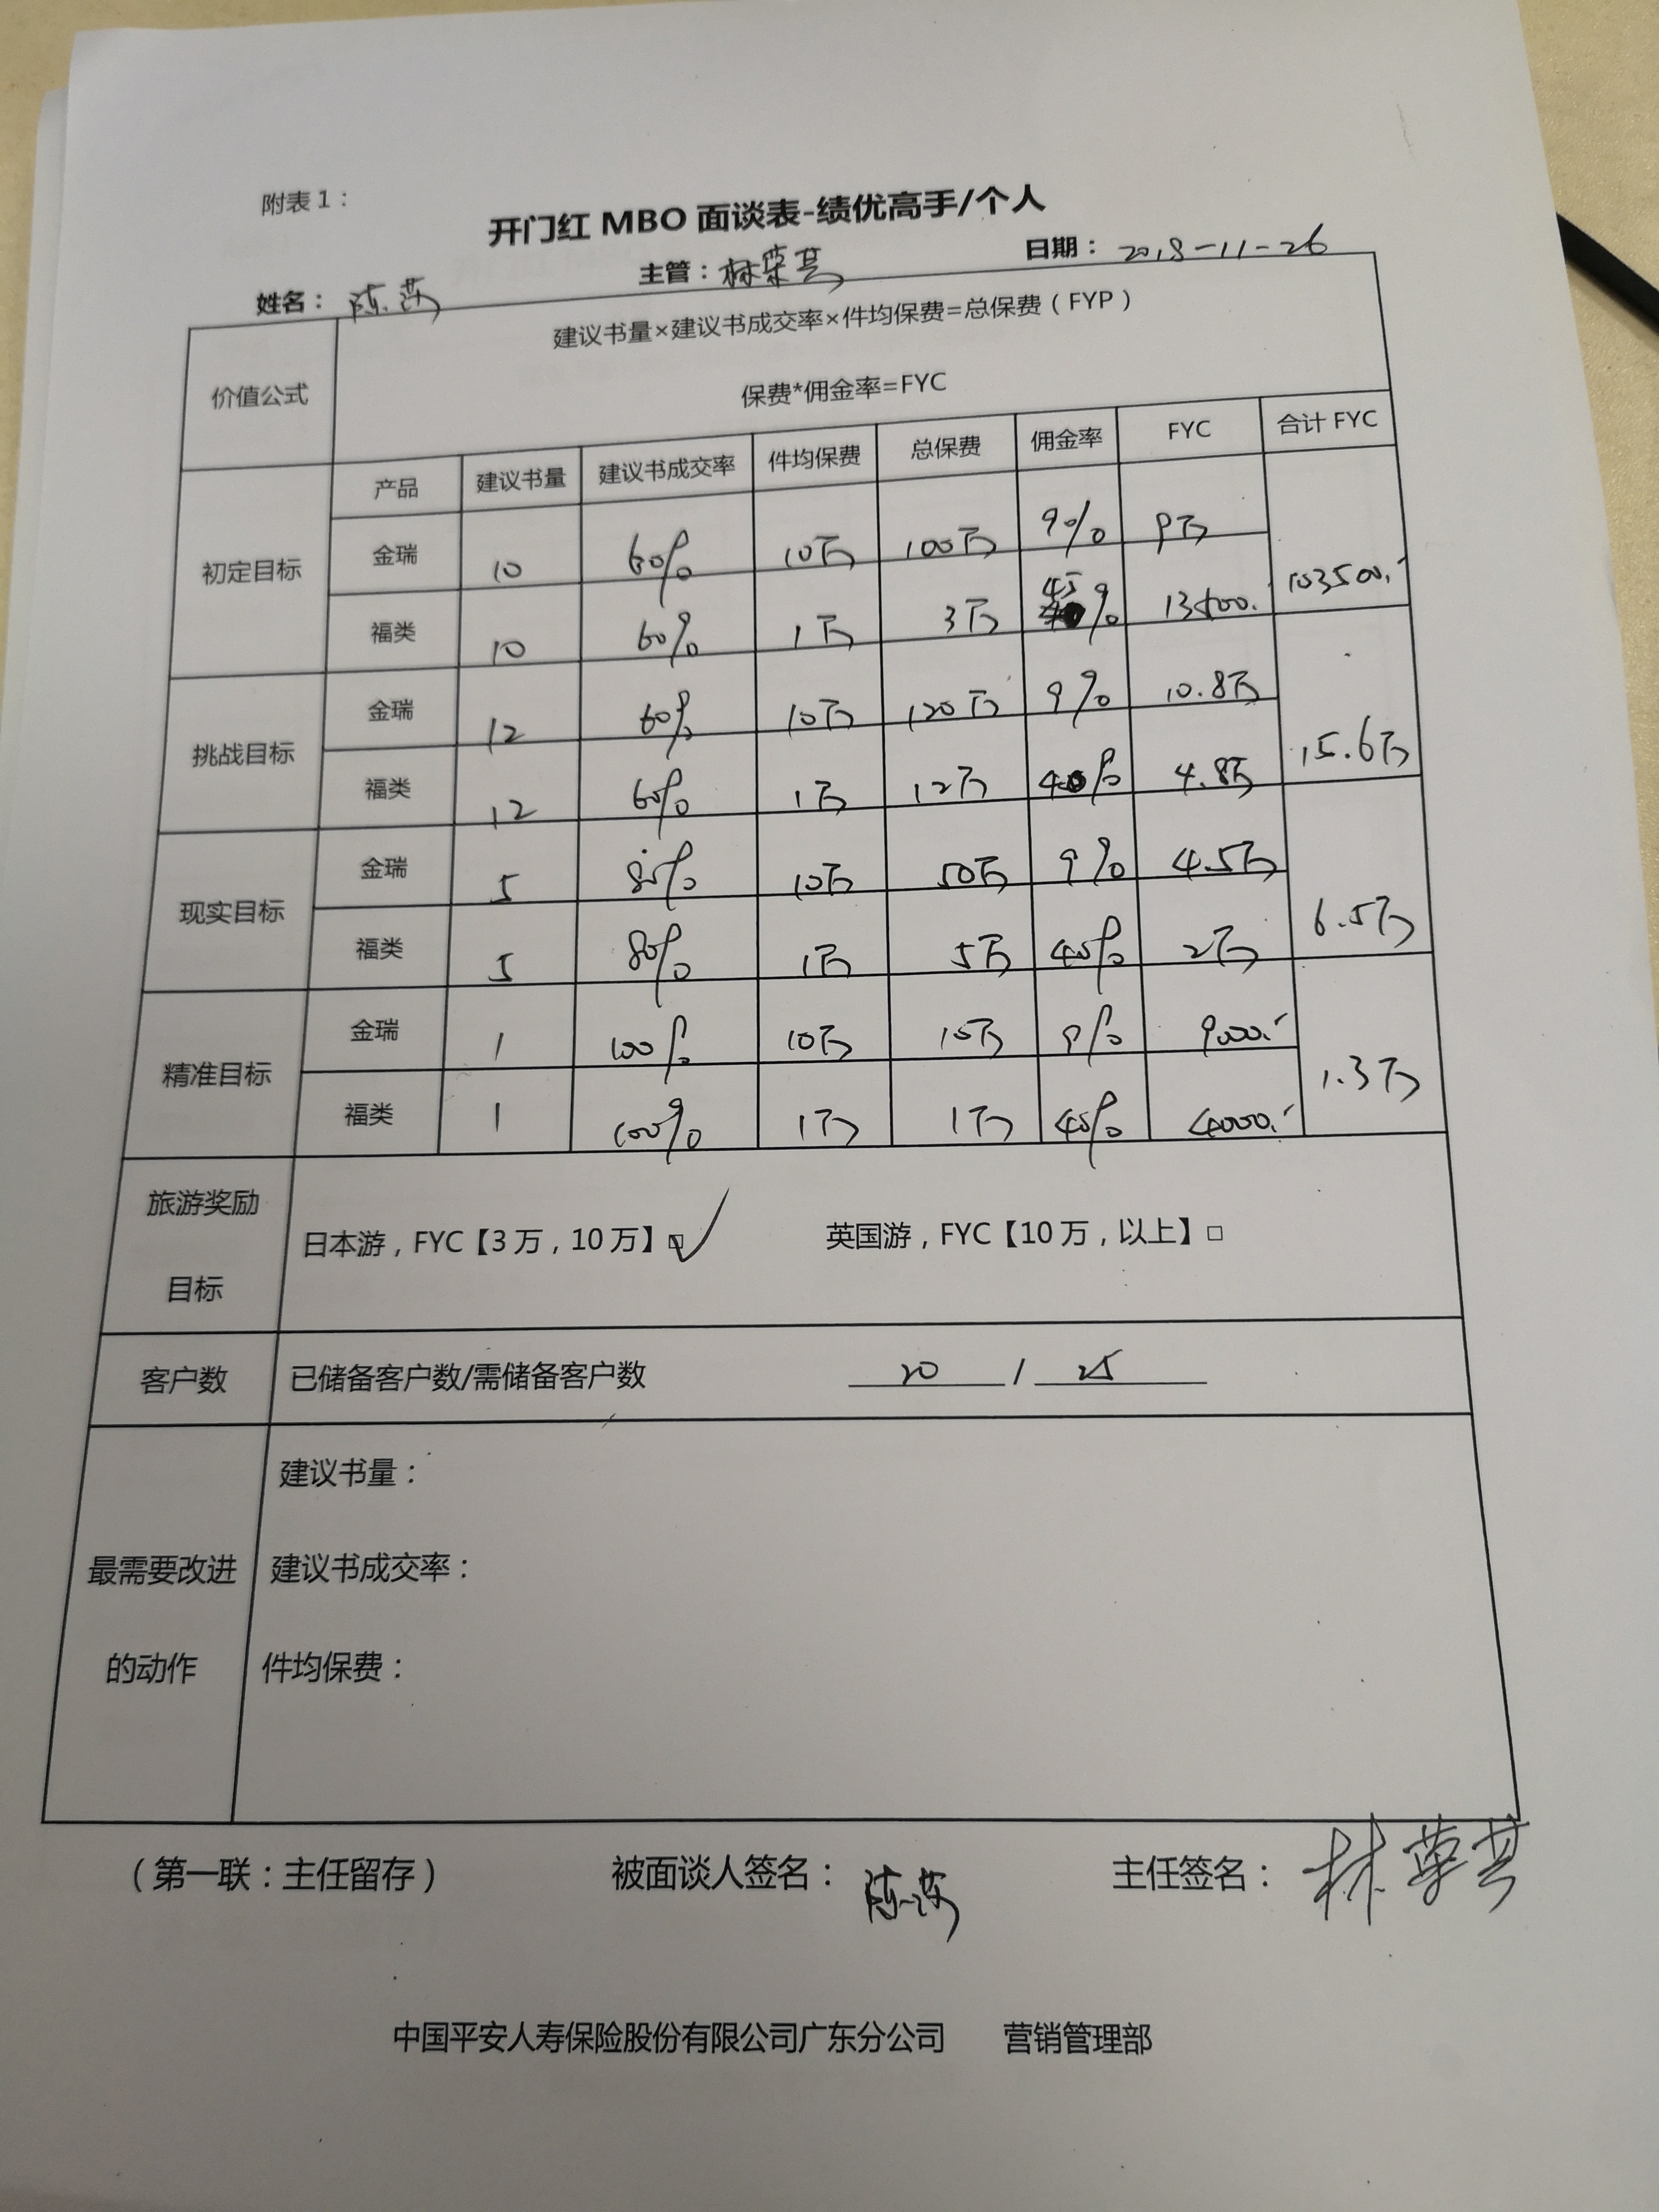 附表1：
开门红 MBO 面谈表-绩优高手/个人
姓名：陈莎 主管：林荣芸 日期：2018-11-26
价值公式 建议书量×建议书成交率×件均保费=总保费（FYP）
保费*佣金率=FYC
产品 建议书量 建议书成交率 件均保费 总保费 佣金率 FYC 合计 FYC
初定目标 金瑞 10 60% 10万 100万 9% 9万 103500.-
福类 10 60% 1万 3万 45% 13500.
挑战目标 金瑞 12 60% 10万 120万 9% 10.8万 15.6万
福类 12 60% 1万 12万 40% 4.8万
现实目标 金瑞 5 80% 10万 50万 9% 4.5万 6.5万
福类 5 80% 1万 5万 40% 2万
精准目标 金瑞 1 100% 10万 10万 9% 9000.- 1.3万
福类 1 100% 1万 1万 40% 4000.-
旅游奖励目标 日本游，FYC【3万，10万】☑ 英国游，FYC【10万，以上】□
客户数 已储备客户数/需储备客户数 20 / 25
最需要改进的动作 建议书量：
建议书成交率：
件均保费：
（第一联：主任留存） 被面谈人签名：陈莎 主任签名：林荣芸
中国平安人寿保险股份有限公司广东分公司 营销管理部